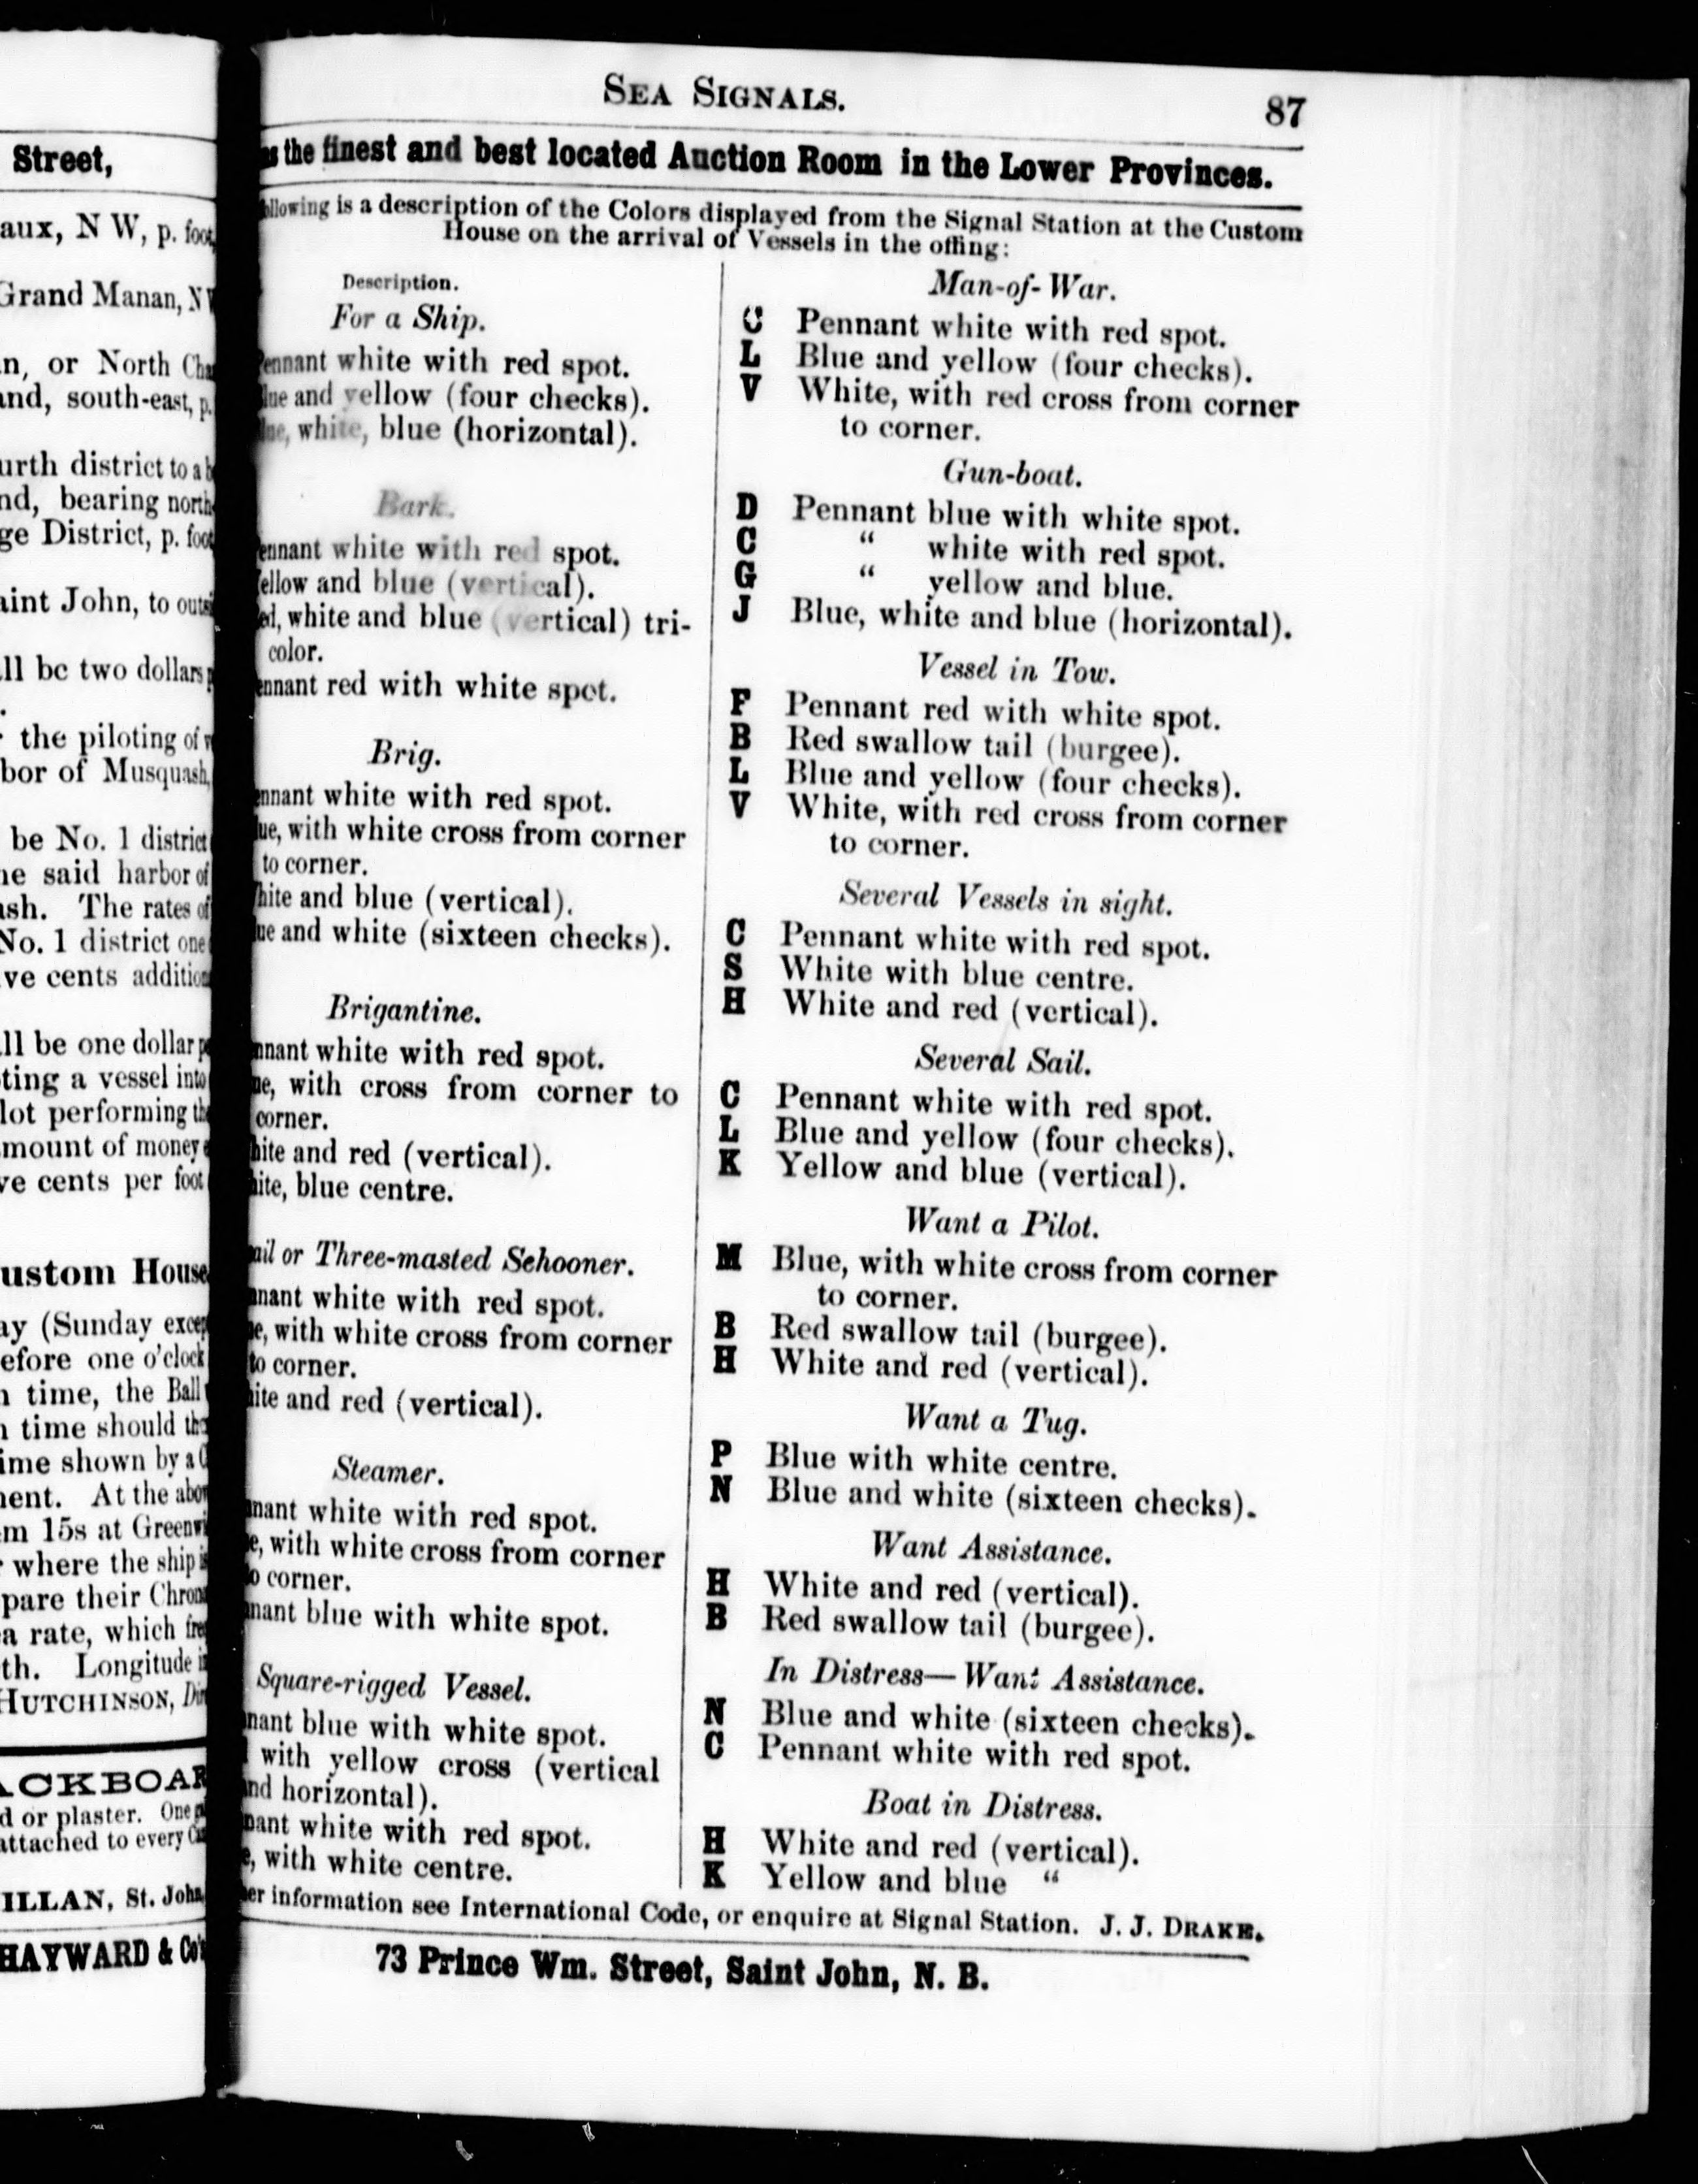 Street,
aux, N W, p. foot,
Grand Manan, N W
n, or North
and, south-east, p.
urth district to a
nd, bearing north
ge District, p. foot
aint John, to
ll be two dollars
the piloting of
bor of Musquash,
be No. 1 district
he said harbor of
ash. The rates of
No. 1 district one
ve cents
ll be one dollar
ting a vessel into
lot performing
mount of money
ve cents per foot
ustom House
ay (Sunday
efore one o'clock
n time, the Ball
n time should
ime shown by a
nent. At the
m 15s at
where the ship
pare their
a rate, which
th. Longitude
HUTCHINSON,
ACKBOAR
d or plaster. One
attached to every
ILLAN, St. John,
HAYWARD & Co's
SEA SIGNALS.
87
the finest and best located Auction Room in the Lower Provinces.
ollowing is a description of the Colors displayed from the Signal Station at the Custom
House on the arrival of Vessels in the offing:
Description.
For a Ship.
Pennant white with red spot.
lue and yellow (four checks).
lue, white, blue (horizontal).
Bark.
ennant white with red spot.
ellow and blue (vertical).
ed, white and blue (vertical) tri-
color.
ennant red with white spot.
Brig.
nnant white with red spot.
lue, with white cross from corner
to corner.
hite and blue (vertical).
ue and white (sixteen checks).
Brigantine.
nnant white with red spot.
ue, with cross from corner to
corner.
hite and red (vertical).
hite, blue centre.
ail or Three-masted Schooner.
nnant white with red spot.
e, with white cross from corner
to corner.
hite and red (vertical).
Steamer.
nnant white with red spot.
e, with white cross from corner
o corner.
nnant blue with white spot.
Square-rigged Vessel.
nnant blue with white spot.
with yellow cross (vertical
nd horizontal).
nant white with red spot.
e, with white centre.
Man-of-War.
C Pennant white with red spot.
L Blue and yellow (four checks).
V White, with red cross from corner
to corner.
Gun-boat.
D Pennant blue with white spot.
C " white with red spot.
G " yellow and blue.
J Blue, white and blue (horizontal).
Vessel in Tow.
F Pennant red with white spot.
B Red swallow tail (burgee).
L Blue and yellow (four checks).
V White, with red cross from corner
to corner.
Several Vessels in sight.
C Pennant white with red spot.
S White with blue centre.
H White and red (vertical).
Several Sail.
C Pennant white with red spot.
L Blue and yellow (four checks).
K Yellow and blue (vertical).
Want a Pilot.
M Blue, with white cross from corner
to corner.
B Red swallow tail (burgee).
H White and red (vertical).
Want a Tug.
P Blue with white centre.
N Blue and white (sixteen checks).
Want Assistance.
H White and red (vertical).
B Red swallow tail (burgee).
In Distress—Want Assistance.
N Blue and white (sixteen checks).
C Pennant white with red spot.
Boat in Distress.
H White and red (vertical).
K Yellow and blue "
er information see International Code, or enquire at Signal Station. J. J. DRAKE.
73 Prince Wm. Street, Saint John, N. B.